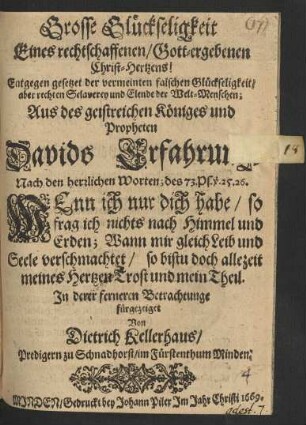 Grosse Glückseligkeit
Eines rechtschaffenen/Gott-ergebenen
Christ-Hertzens/
Entgegen gesetzet der vermeinten falschen Glückseligkeit/
aber rechten Sclaverey und Elende der Welt-Menschen;
Aus des geistreichen Königes und
Propheten
Davids Erfahrung
Nach den hertzlichen Worten; des 73. Ps. v. 25. 26.
WEnn ich nur dich habe/ so
frag ich nichts nach Himmel und
Erden; Wann mir gleich Leib und
Seele verschmachtet/ so bistu doch allezeit
meines Hertzen Trost und mein Theil.
In derer ferneren Betrachtunge
fürgezeiget
Von
Dietrich Kellerhaus/
Predigern zu Schnadhorst/im Fürstenthum Minden.
MINDEN/Gedruckt bey Johann Piler Im Jahr Christi 1669.
18
4